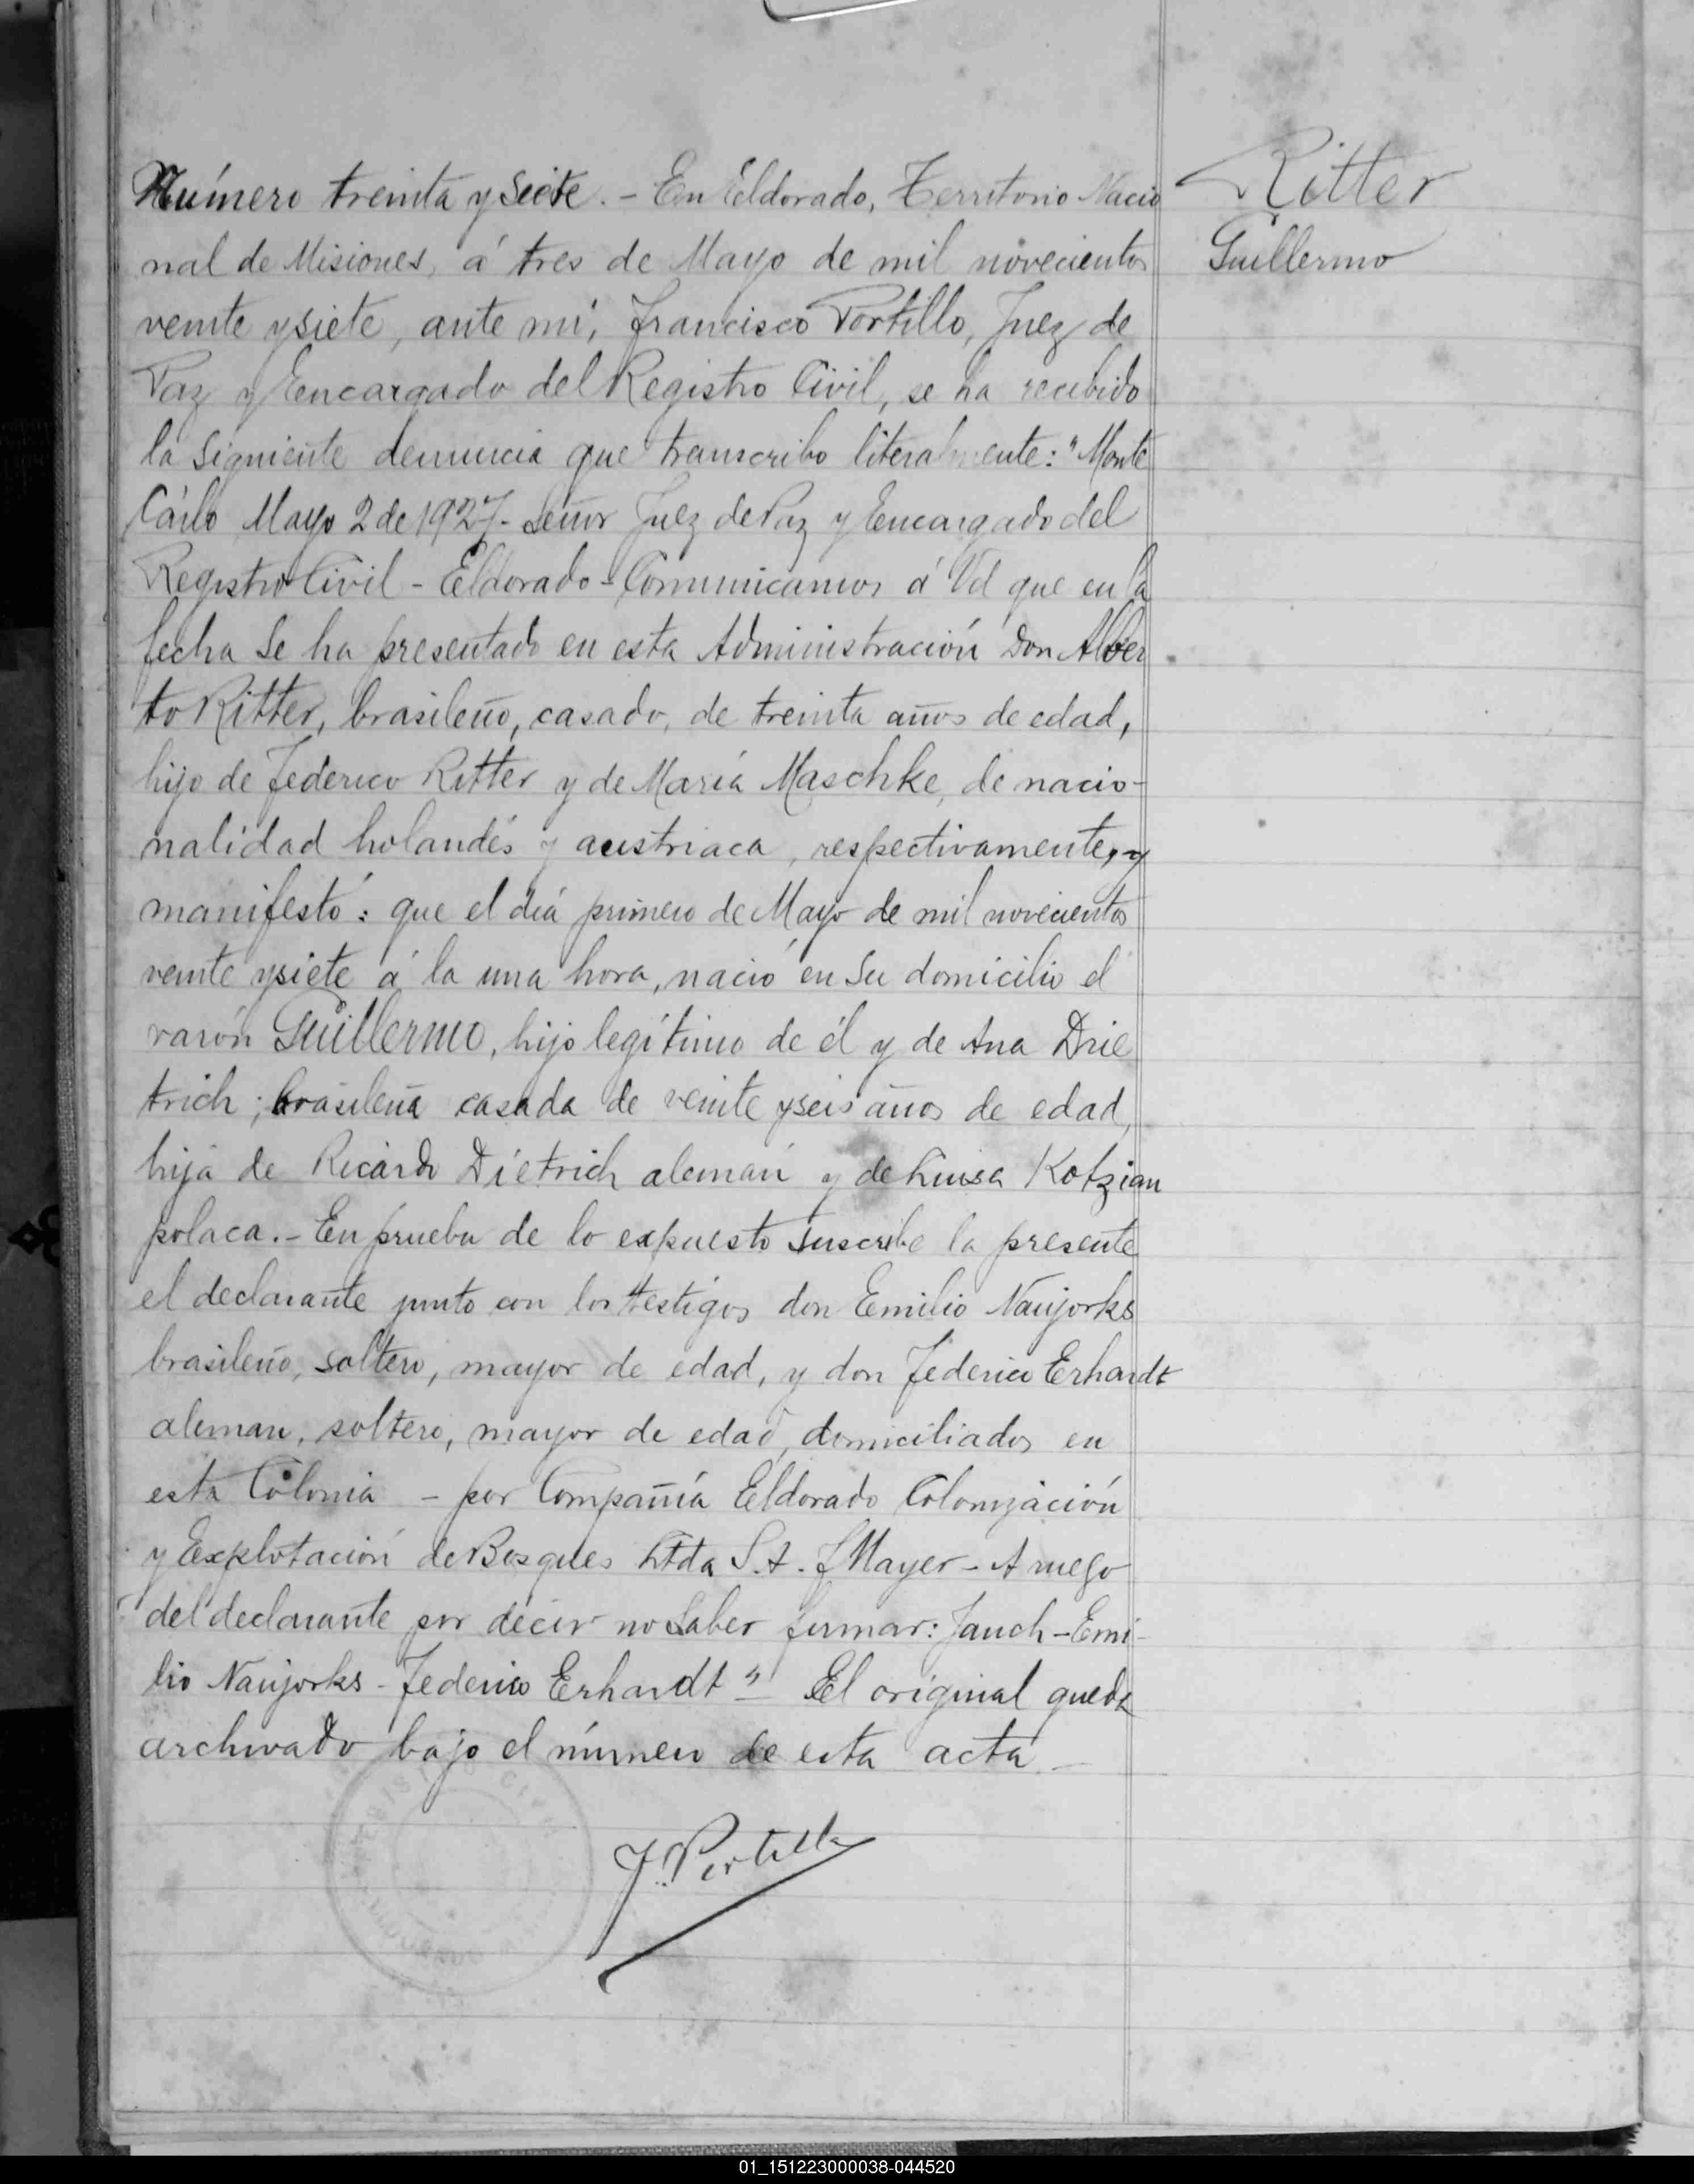 Número treinta y siete. - En Eldorado, Territorio Nacio
nal de Misiones, á tres de Mayo de mil novecientos
veinte y siete, ante mi, Francisco Portillo, Juez de
Paz y Encargado del Registro Civil, se ha recibido
la siguiente denuncia que transcribo literalmente: "Monte
Cárlo Mayo 2 de 1927 - Señor Juez de Paz y Encargado del
Registro Civil - Eldorado - Comunicamos á Vd que en la
fecha se ha presentado en esta Administración Don Alber
to Ritter, brasileño, casado, de treinta años de edad,
hijo de Federico Ritter y de María Maschke, de nacio-
nalidad holandés y austriaca, respectivamente, y
manifestó: que el día primero de Mayo de mil novecientos
veinte y siete á la una hora, nació en su domicilio el
varón Guillermo, hijo legítimo de él y de Ana Drie
trich, brasileña casada de veinte y seis años de edad,
hija de Ricardo Dietrich alemán y de Luisa Kotzian
polaca. - En prueba de lo expuesto suscribe la presente
el declarante junto con los testigos don Emilio Naujorks
brasileño, soltero, mayor de edad, y don Federico Erhardt
aleman, soltero, mayor de edad, domiciliados en
esta Colonia - por Compañía Eldorado Colonización
y Explotación de Bosques Ltda S.A. J Mayer - A ruego
del declarante por décir no saber firmar: Jauch - Emi-
lio Naujorks - Federico Erhardt" - El original queda
archivado bajo el número de esta acta -
J. Portillo
Ritter
Guillermo
01_151223000038-044520